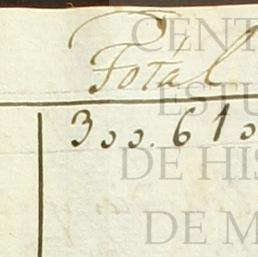 Total
300.610
CENT
ESTU
DE HIS
DE M